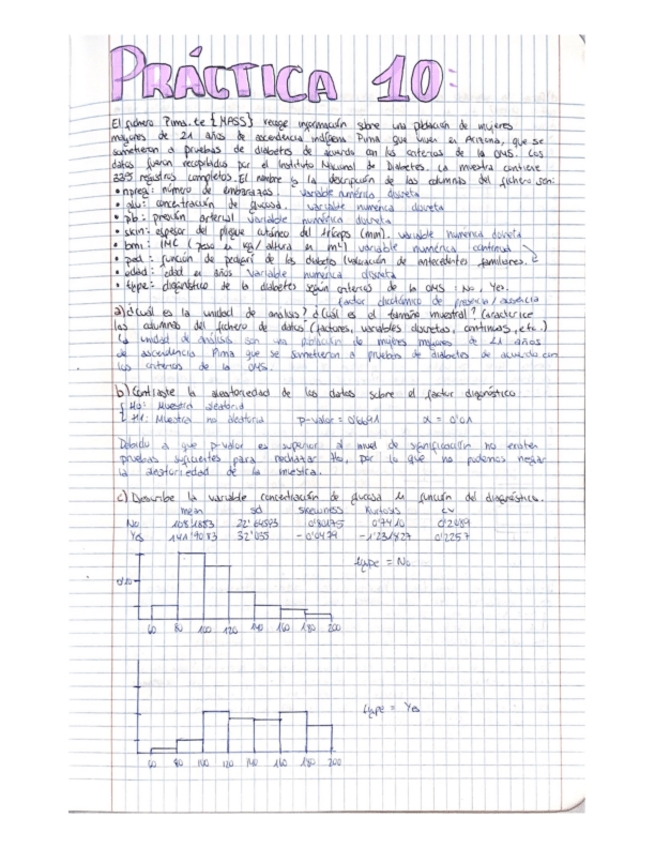 PRÁCTICA 10:
El fichero Pima.te {MASS} recoge información sobre una población de mujeres
mayores de 21 años de ascendencia indígena Pima que viven en Arizona, que se
sometieron a pruebas de diabetes de acuerdo con los criterios de la OMS. Los
datos fueron recopilados por el Instituto Nacional de Diabetes. La muestra contiene
registros completos. El nombre y la descripción de las columnas del fichero son:
• npreg: número de embarazos. variable numérica discreta
• glu: concentración de glucosa. variable numérica discreta
• pb: presión arterial variable numérica discreta
• skin: espesor del pliegue cutáneo del tríceps (mm). variable numérica discreta
• bmi: IMC (peso en kg/altura en m²) variable numérica continua
• ped: función de pedigrí de los diabetes (valoración de antecedentes familiares.
• edad: edad en años variable numérica discreta
• type: diagnóstico de la diabetes según criterios de la OMS: No, Yes.
factor dicotómico de presencia/ausencia
a) ¿Cuál es la unidad de análisis? ¿Cuál es el tamaño muestral? Caracterice
las columnas del fichero de datos (factores, variables discretas, continuas, etc.)
La unidad de análisis son una población de mujeres mayores de 21 años
de ascendencia Pima que se sometieron a pruebas de diabetes de acuerdo con
los criterios de la OMS.
b) Contraste la aleatoriedad de los datos sobre el factor diagnóstico
{ H0: Muestra aleatoria
{ H1: Muestra no aleatoria p-valor = 0'6691 α = 0'01
Debido a que p-valor es superior al nivel de significación no existen
pruebas suficientes para rechazar H0, por lo que no podemos negar
la aleatoriedad de la muestra.
c) Describe la variable concentración de glucosa en función del diagnóstico.
mean sd skewness Kurtosis cv
No 108'1883 22'64593 0'80175 0'7410 0'2089
Yes 141'9083 32'035 -0'0479 -1'231827 0'2257
type = No
0'10
60 80 100 120 140 160 180 200
type = Yes
60 80 100 120 140 160 180 200